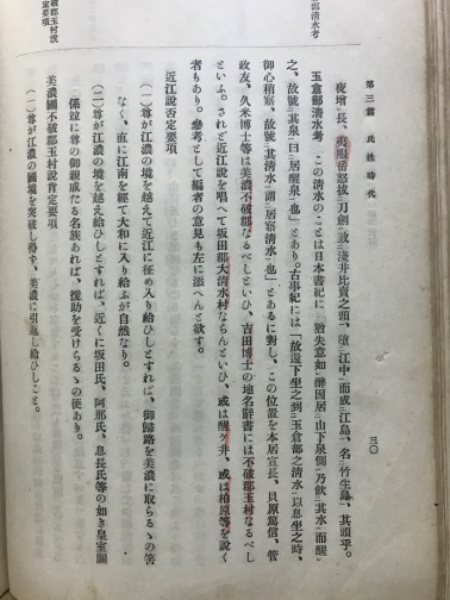 第三篇　氏姓時代
三〇
夜增レ長、夷服岳怒拔二刀劍一、敵二淺井比賣之頭一、墮二江中一而成二江島一、名二竹生島一、其頭乎。
玉倉部清水考　この清水のことは日本書紀に「猶失意如レ醉因居二山下泉側一乃飮二其水一而醒レ
之、故號二其泉一曰二居醒泉一也」とあり。古事紀には「故還下坐之到二玉倉部之清水一以息坐之時、
御心稍寤、故號二其清水一謂二居寤清水一也」とあるに對し、この位置を本居宣長、貝原篤信、菅
政友、久米博士等は美濃不破郡なるべしといひ、吉田博士の地名辭書には不破郡玉村なるべし
といふ。されど近江說を唱へて坂田郡大清水村ならんといひ、或は醒ヶ井、或は柏原等を說く
者もあり。參考として編者の意見も左に添へんと欲す。
近江說否定要項
(一)尊が江濃の境を越えて近江に征め入り給ひしとすれば、御歸路を美濃に取らるゝの筈
なく、直に江南を經て大和に入り給ふが自然なり。
(二)尊が江濃の境を越え給ひしとすれば、近くに坂田氏、阿那氏、息長氏等の如き皇室關
係竝に尊の御親戚たる名族あれば、援助を受けらるゝの便あり。
美濃國不破郡玉村說肯定要項
(一)尊が江濃の國境を突破し得ず、美濃に引返し給ひしこと。
部清水考
破郡玉村說
定要項